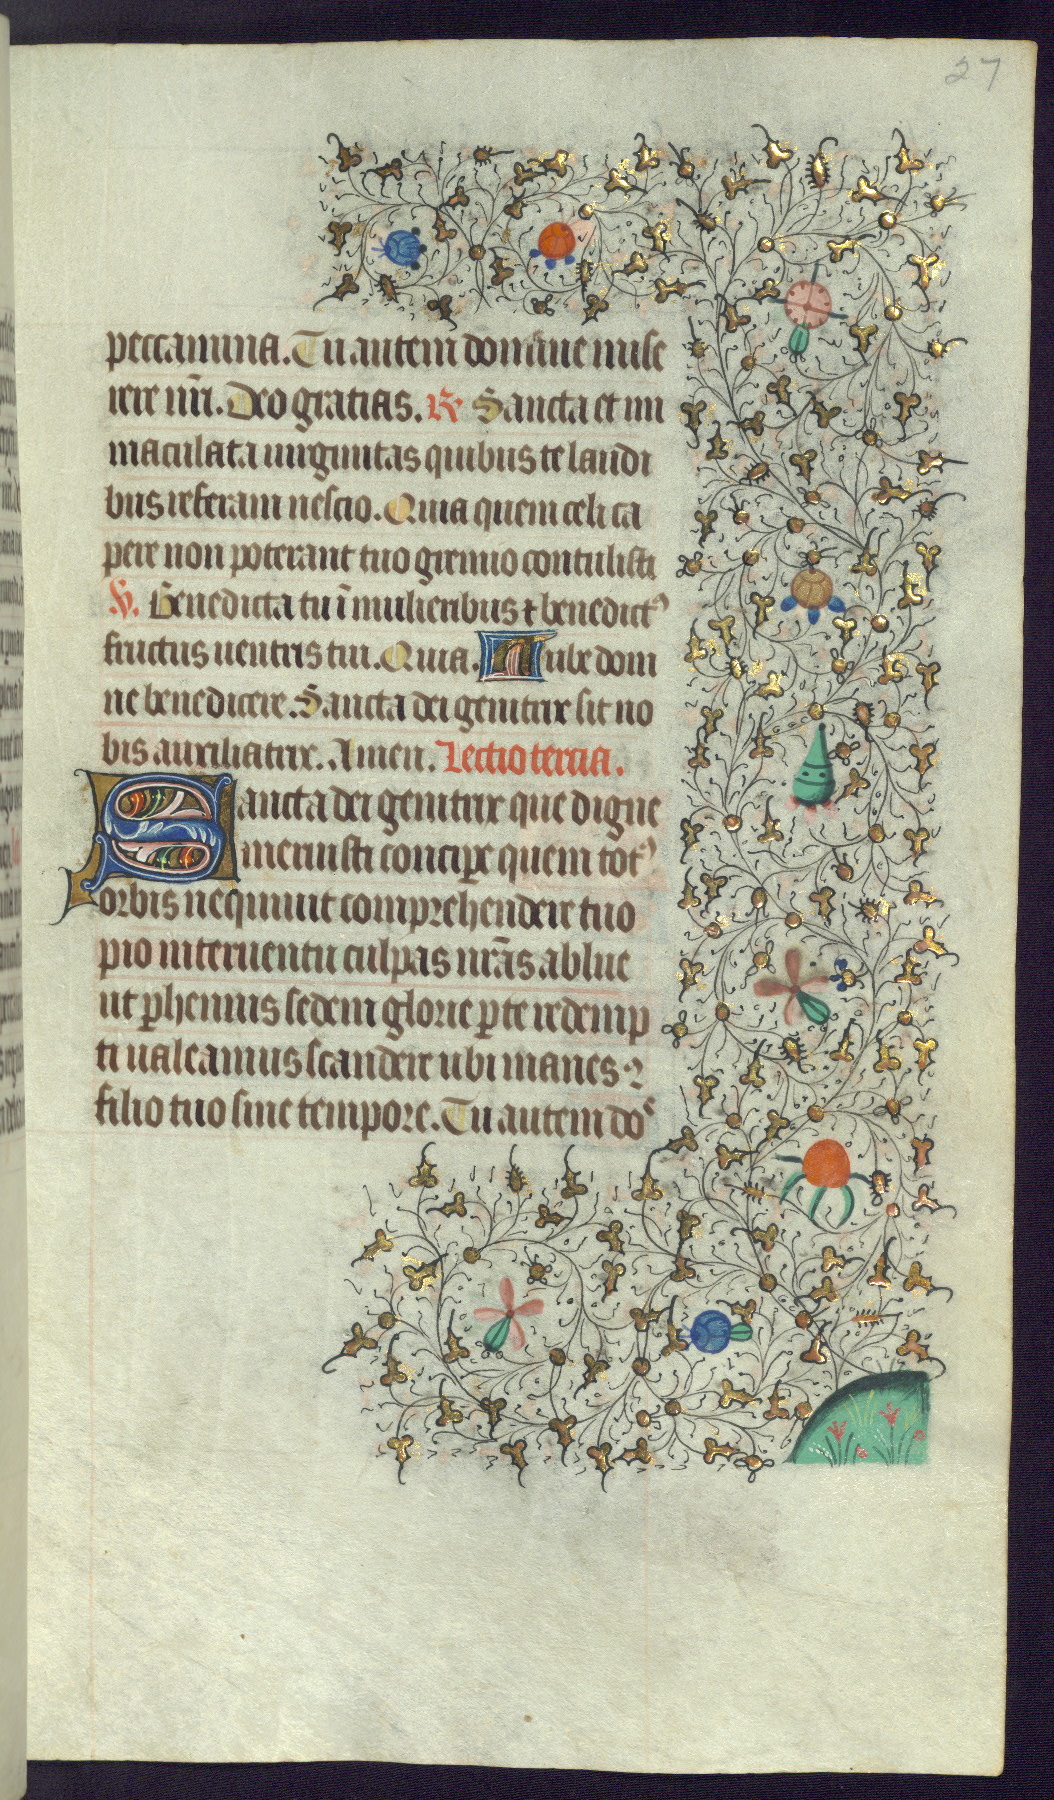 27
peccamina. Tu autem domine mise
rere nr̄i. Deo gratias. R̸ Sancta et im
maculata uirginitas quibus te laudi
bus referam nescio. Quia quem celi ca
pere non poterant tuo gremio contulisti
V. Benedicta tu ī mulieribus ⁊ benedictꝰ
fructus uentris tui. Quia. Iube dom
ne benedicere. Sancta dei genitrix sit no
bis auxiliatrix. Amen. Lectio tercia.
Sancta dei genitrix que digne
meruisti concipe quem totꝰ
orbis nequiuit comprehendere tuo
pio interuentu culpas nr̄as ablue
ut ꝑhennis sedem glorie ꝑ te redemp
ti ualeamus scandere ubi manes ⁊
filio tuo sine tempore. Tu autem do